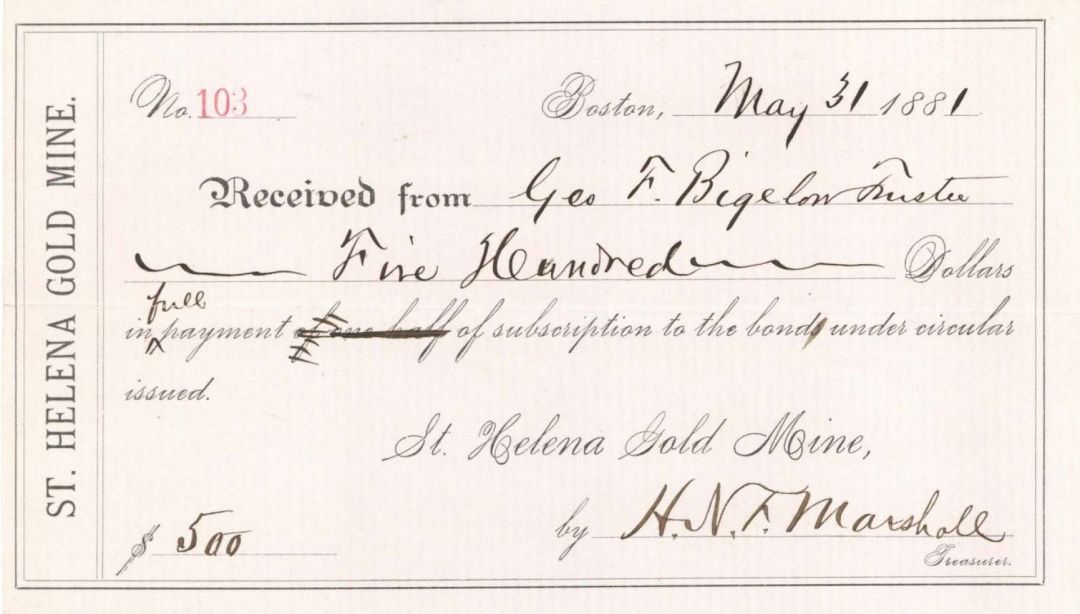 ST. HELENA GOLD MINE.
No. 103
Boston, May 31 1881
Received from Geo F. Bigelow Trustee
Five Hundred Dollars
full
in payment of one half of subscription to the bonds under circular
issued.
St. Helena Gold Mine,
$ 500
by H. N. F. Marshall
Treasurer.